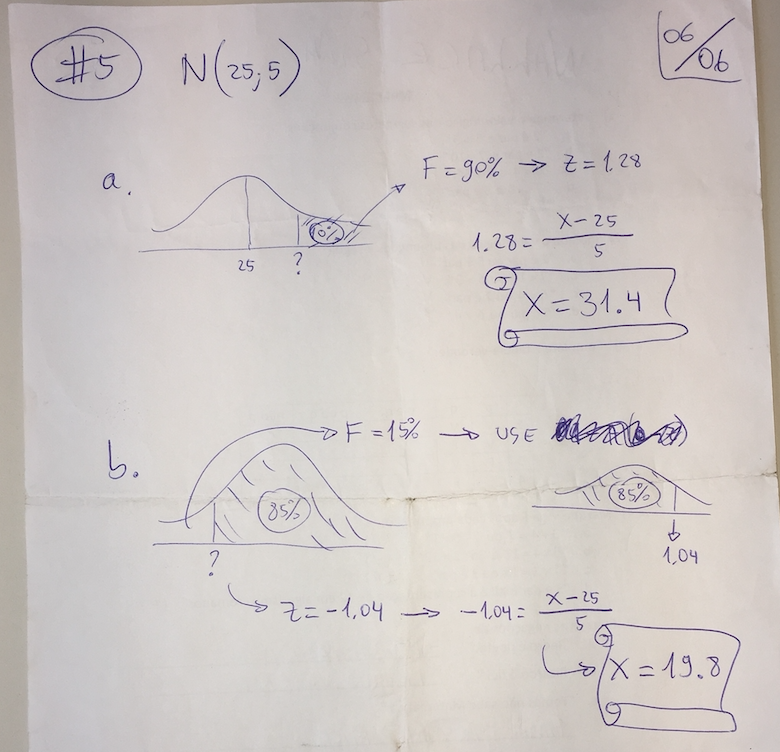 #5 N(25; 5)
06/06
a.
F = 90% → Z = 1.28
25 ?
1.28 = (X - 25)/5
X = 31.4
b.
F = 15% → USE
85%
85%
?
1,04
Z = -1,04 → -1,04 = (X - 25)/5
X = 19.8